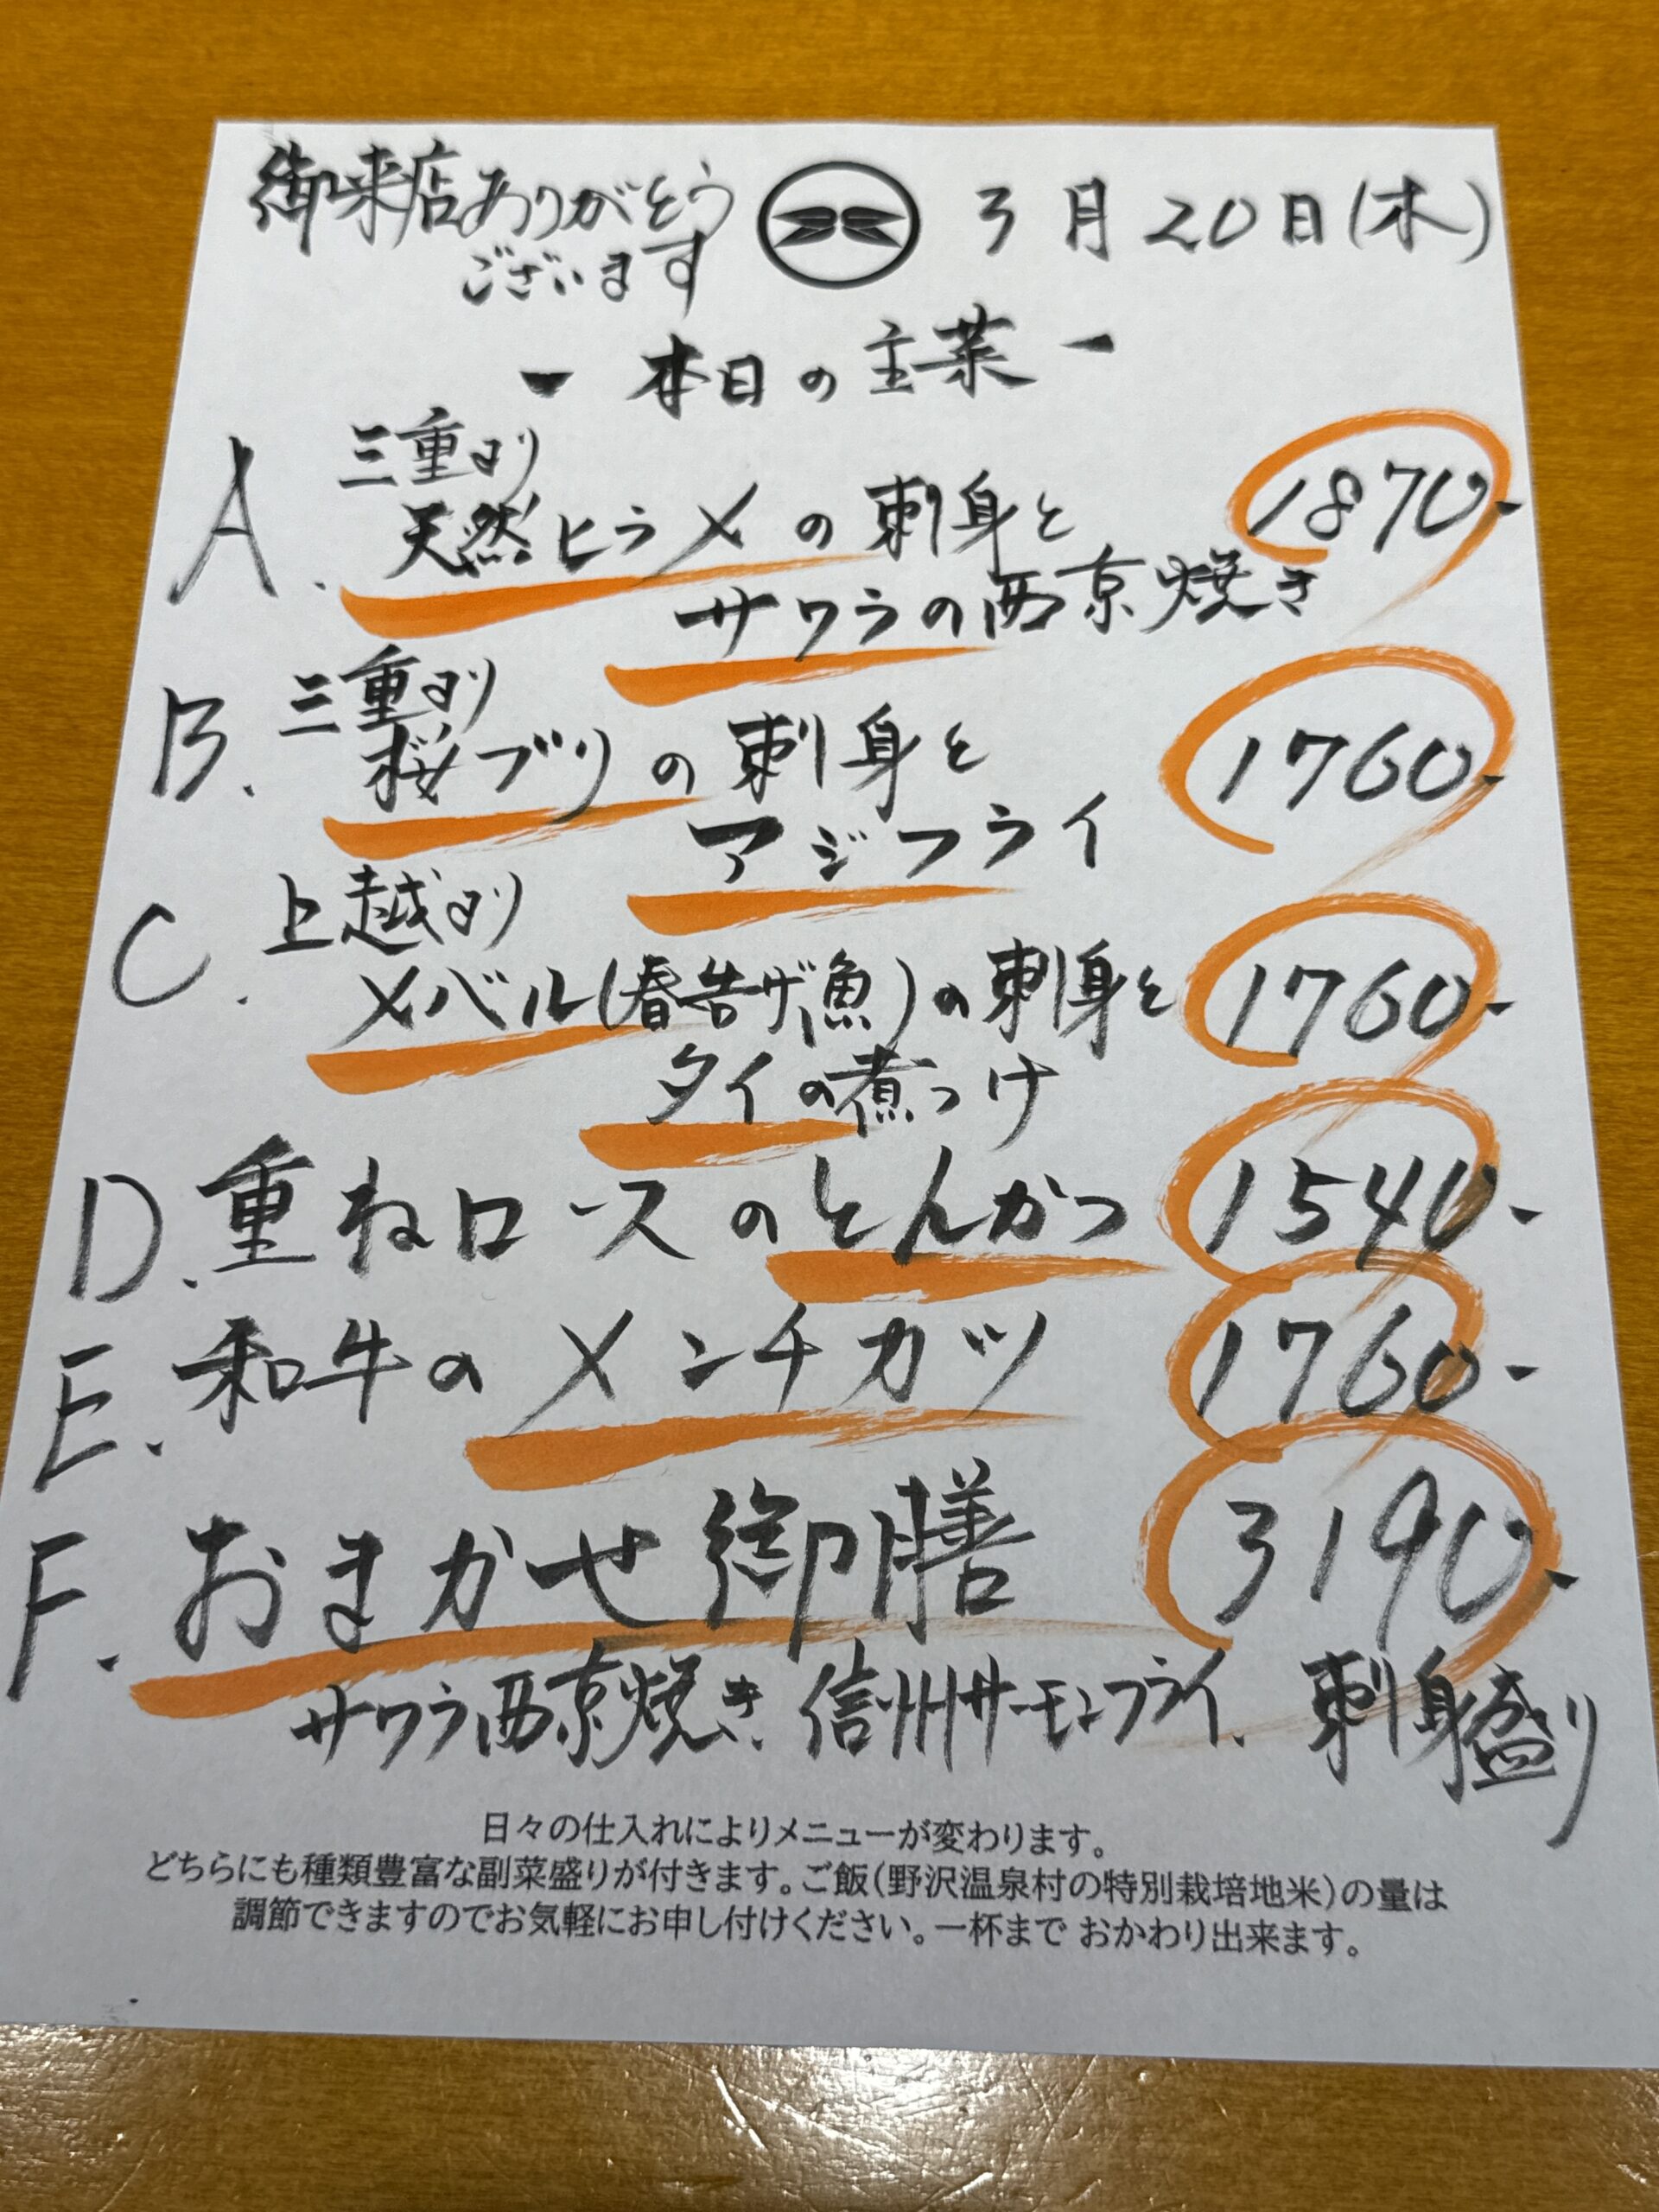 御来店ありがとう
ございます
3月20日(木)
- 本日の主菜 -
A. 三重より
天然ヒラメの刺身と 1870-
サワラの西京焼き
B. 三重より
桜ブリの刺身と 1760-
アジフライ
C. 上越より
メバル(春告げ魚)の刺身と 1760-
タイの煮つけ
D. 重ねロースのとんかつ 1540-
E. 和牛のメンチカツ 1760-
F. おまかせ御膳 3190-
サワラ西京焼き、信州サーモンフライ、刺身盛り
日々の仕入れによりメニューが変わります。
どちらにも種類豊富な副菜盛りが付きます。ご飯(野沢温泉村の特別栽培地米)の量は
調節できますのでお気軽にお申し付けください。一杯まで おかわり出来ます。